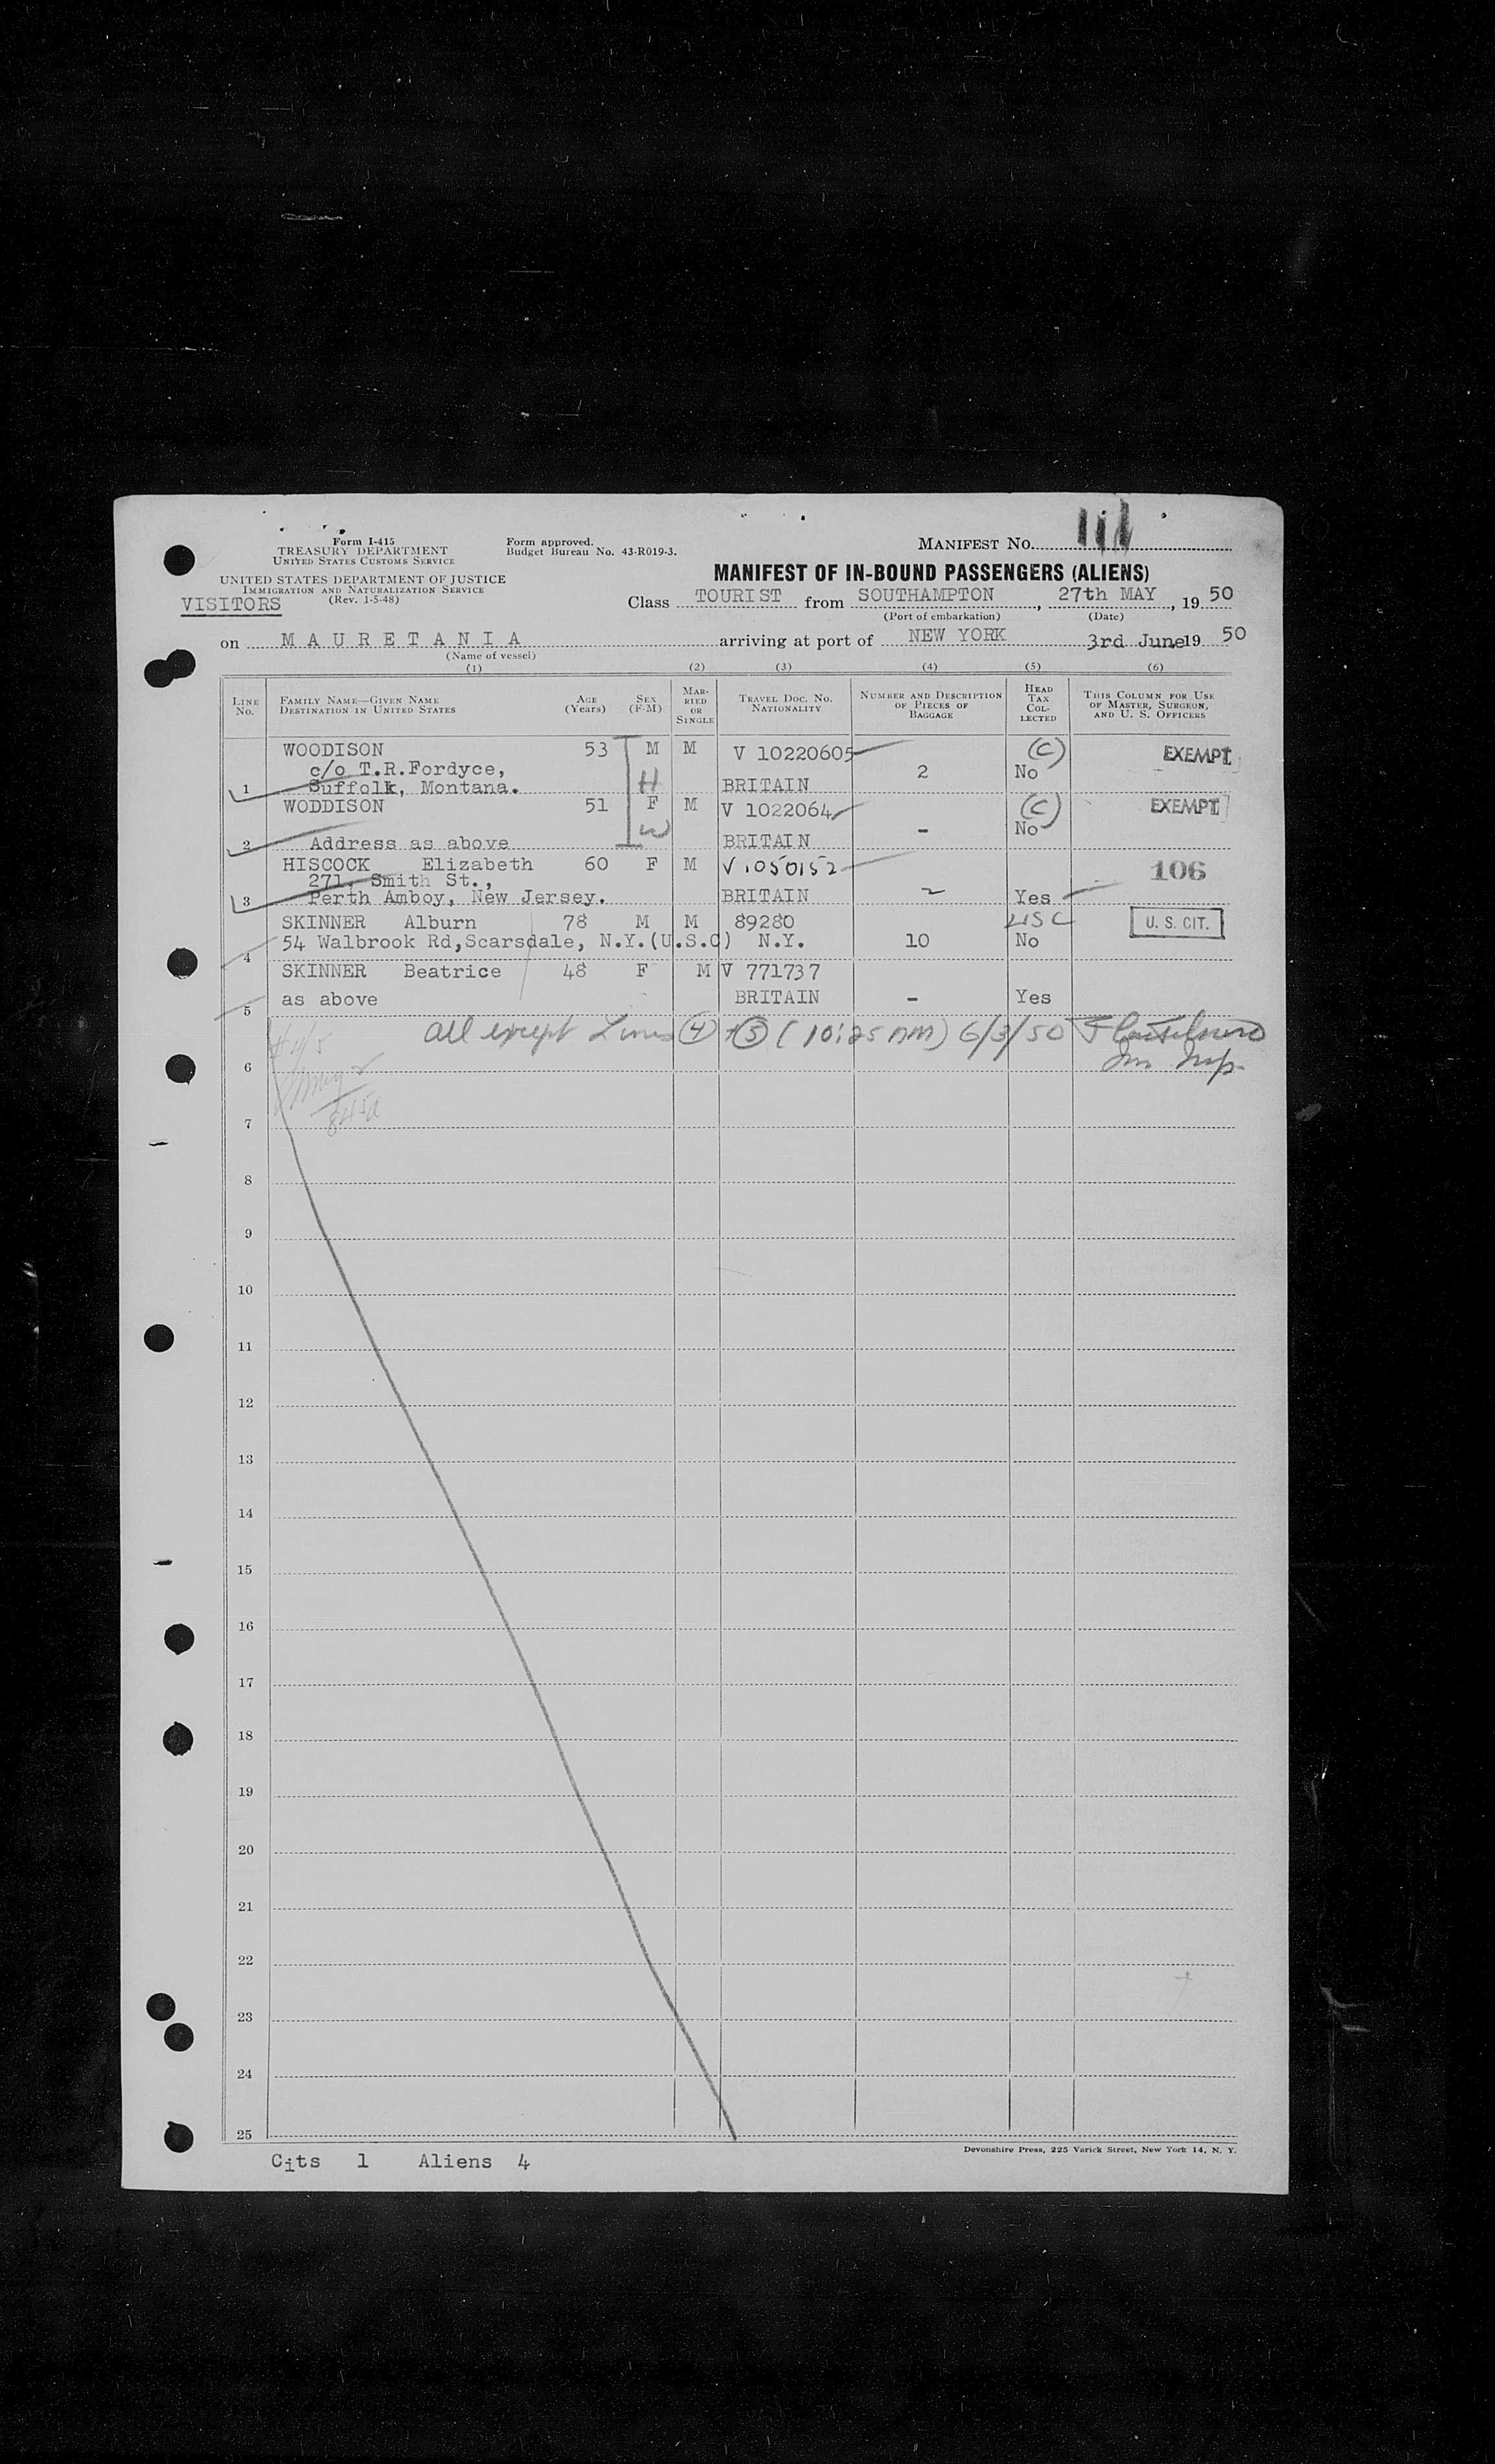 Form I-415
TREASURY DEPARTMENT
UNITED STATES CUSTOMS SERVICE
Form approved.
Budget Bureau No. 43-R019-3.
MANIFEST No. 111
UNITED STATES DEPARTMENT OF JUSTICE
IMMIGRATION AND NATURALIZATION SERVICE
(Rev. 1-5-48)
VISITORS
MANIFEST OF IN-BOUND PASSENGERS (ALIENS)
Class TOURIST from SOUTHAMPTON, 27th MAY, 19 50
(Port of embarkation) (Date)
on MAURETANIA arriving at port of NEW YORK 3rd June 19 50
(Name of vessel)
(1) (2) (3) (4) (5) (6)
LINE No. FAMILY NAME—GIVEN NAME DESTINATION IN UNITED STATES AGE (Years) SEX (F-M) MARRIED OR SINGLE TRAVEL DOC. NO. NATIONALITY NUMBER AND DESCRIPTION OF PIECES OF BAGGAGE HEAD TAX COLLECTED THIS COLUMN FOR USE OF MASTER, SURGEON, AND U. S. OFFICERS
WOODISON 53 M M V 10220605 (C) EXEMPT
c/o T.R.Fordyce, H 2 No
1 Suffolk, Montana. BRITAIN
WODDISON 51 F M V 1022064 (C) EXEMPT
W - No
2 Address as above BRITAIN
HISCOCK Elizabeth 60 F M V 1050152 106
271, Smith St.,
3 Perth Amboy, New Jersey. BRITAIN 2 Yes
SKINNER Alburn 78 M M 89280 USC U. S. CIT.
4 54 Walbrook Rd,Scarsdale, N.Y.(U.S.C) N.Y. 10 No
SKINNER Beatrice 48 F M V 771737
5 as above BRITAIN - Yes
All except Lines (4) + (5) (10:25 AM) 6/3/50
Im Insp.
#4/5
6
7
8
9
10
11
12
13
14
15
16
17
18
19
20
21
22
23
24
25
Devonshire Press, 225 Varick Street, New York 14, N. Y.
Cits 1 Aliens 4